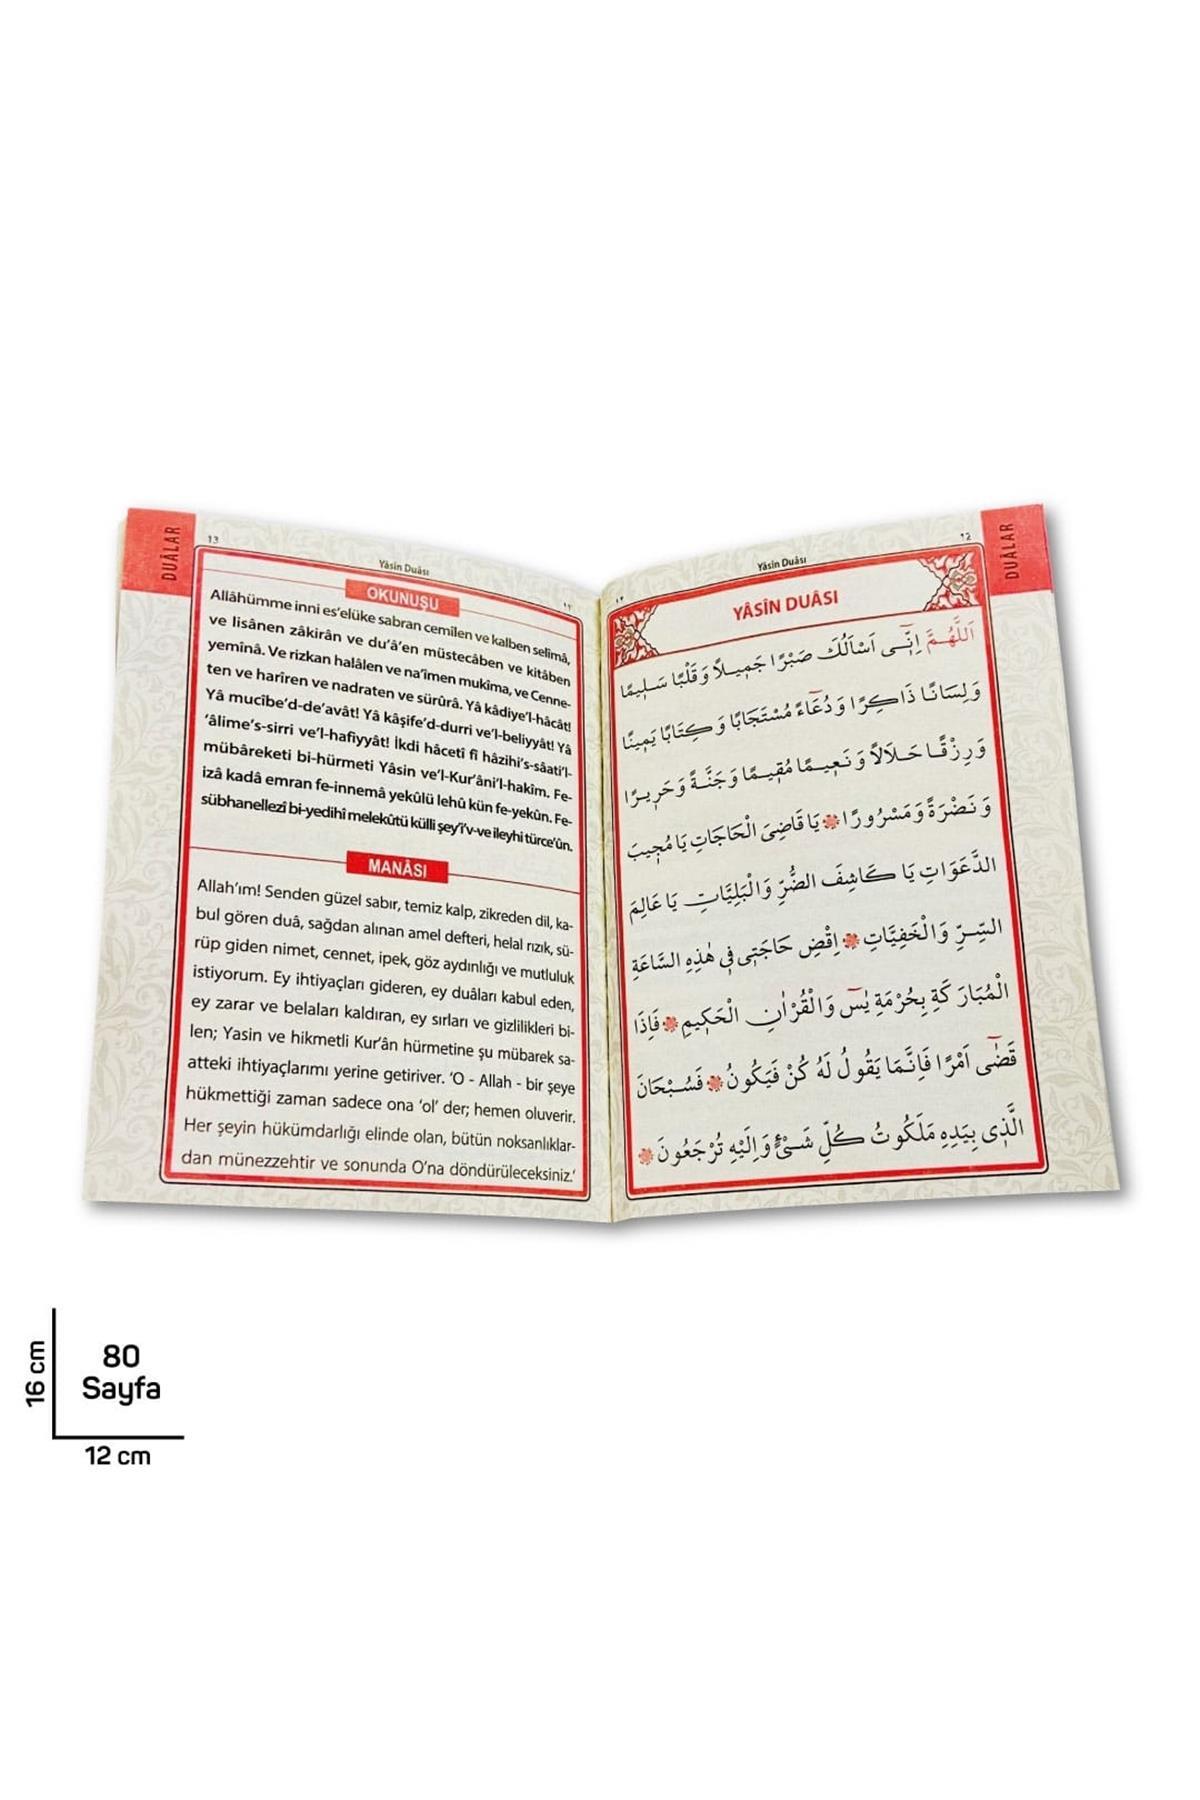 DUÂLAR
١٢
12
Yâsin Duâsı
YÂSÎN DUÂSI
اَللّٰهُمَّ اِنّ۪ٓى اَسْاَلُكَ صَبْرًا جَم۪يلًا وَقَلْبًا سَل۪يمًا
وَلِسَانًا ذَاكِرًا وَدُعَٓاءً مُسْتَجَابًا وَكِتَابًا يَم۪ينًا
وَرِزْقًا حَلَالًا وَنَع۪يمًا مُق۪يمًا وَجَنَّةً وَحَر۪يرًا
وَنَضْرَةً وَمَسْرُورًا يَا قَاضِىَ الْحَاجَاتِ يَا مُج۪يبَ
الدَّعَوَاتِ يَا كَاشِفَ الضُّرِّ وَالْبَلِيَّاتِ يَا عَالِمَ
السِّرِّ وَالْخَفِيَّاتِ اِقْضِ حَاجَت۪ى ف۪ى هٰذِهِ السَّاعَةِ
الْمُبَارَكَةِ بِحُرْمَةِ يٰسٓ وَالْقُرْاٰنِ الْحَك۪يمِ فَاِذَا
قَضٰٓى اَمْرًا فَاِنَّمَا يَقُولُ لَهُ كُنْ فَيَكُونُ فَسُبْحَانَ
الَّذ۪ى بِيَدِه۪ مَلَكُوتُ كُلِّ شَىْءٍ وَاِلَيْهِ تُرْجَعُونَ
DUÂLAR
13
Yâsin Duâsı
١٣
OKUNUŞU
Allâhümme inni es’elüke sabran cemîlen ve kalben selîmâ,
ve lisânen zâkirân ve du’â’en müstecâben ve kitâben
yemînâ. Ve rizkan halâlen ve na’îmen mukîma, ve Cenne-
ten ve harîren ve nadraten ve sürûrâ. Yâ kâdiye’l-hâcât!
Yâ mucîbe’d-de’avât! Yâ kâşife’d-durri ve’l-beliyyât! Yâ
‘âlime’s-sirri ve’l-hafiyyât! İkdi hâcetî fî hâzihi’s-sâati’l-
mübâreketi bi-hürmeti Yâsin ve’l-Kur’âni’l-hakîm. Fe-
izâ kadâ emran fe-innemâ yekûlü lehû kün fe-yekûn. Fe-
sübhanellezî bi-yedihî melekûtü külli şey’i’v-ve ileyhi türce’ûn.
MANÂSI
Allah’ım! Senden güzel sabır, temiz kalp, zikreden dil, ka-
bul gören duâ, sağdan alınan amel defteri, helal rızık, sü-
rüp giden nimet, cennet, ipek, göz aydınlığı ve mutluluk
istiyorum. Ey ihtiyaçları gideren, ey duâları kabul eden,
ey zarar ve belaları kaldıran, ey sırları ve gizlilikleri bi-
len; Yasin ve hikmetli Kur’ân hürmetine şu mübarek sa-
atteki ihtiyaçlarımı yerine getiriver. ‘O - Allah - bir şeye
hükmettiği zaman sadece ona ‘ol’ der; hemen oluverir.
Her şeyin hükümdarlığı elinde olan, bütün noksanlıklar-
dan münezzehtir ve sonunda O’na döndürüleceksiniz.’
16 cm
80
Sayfa
12 cm